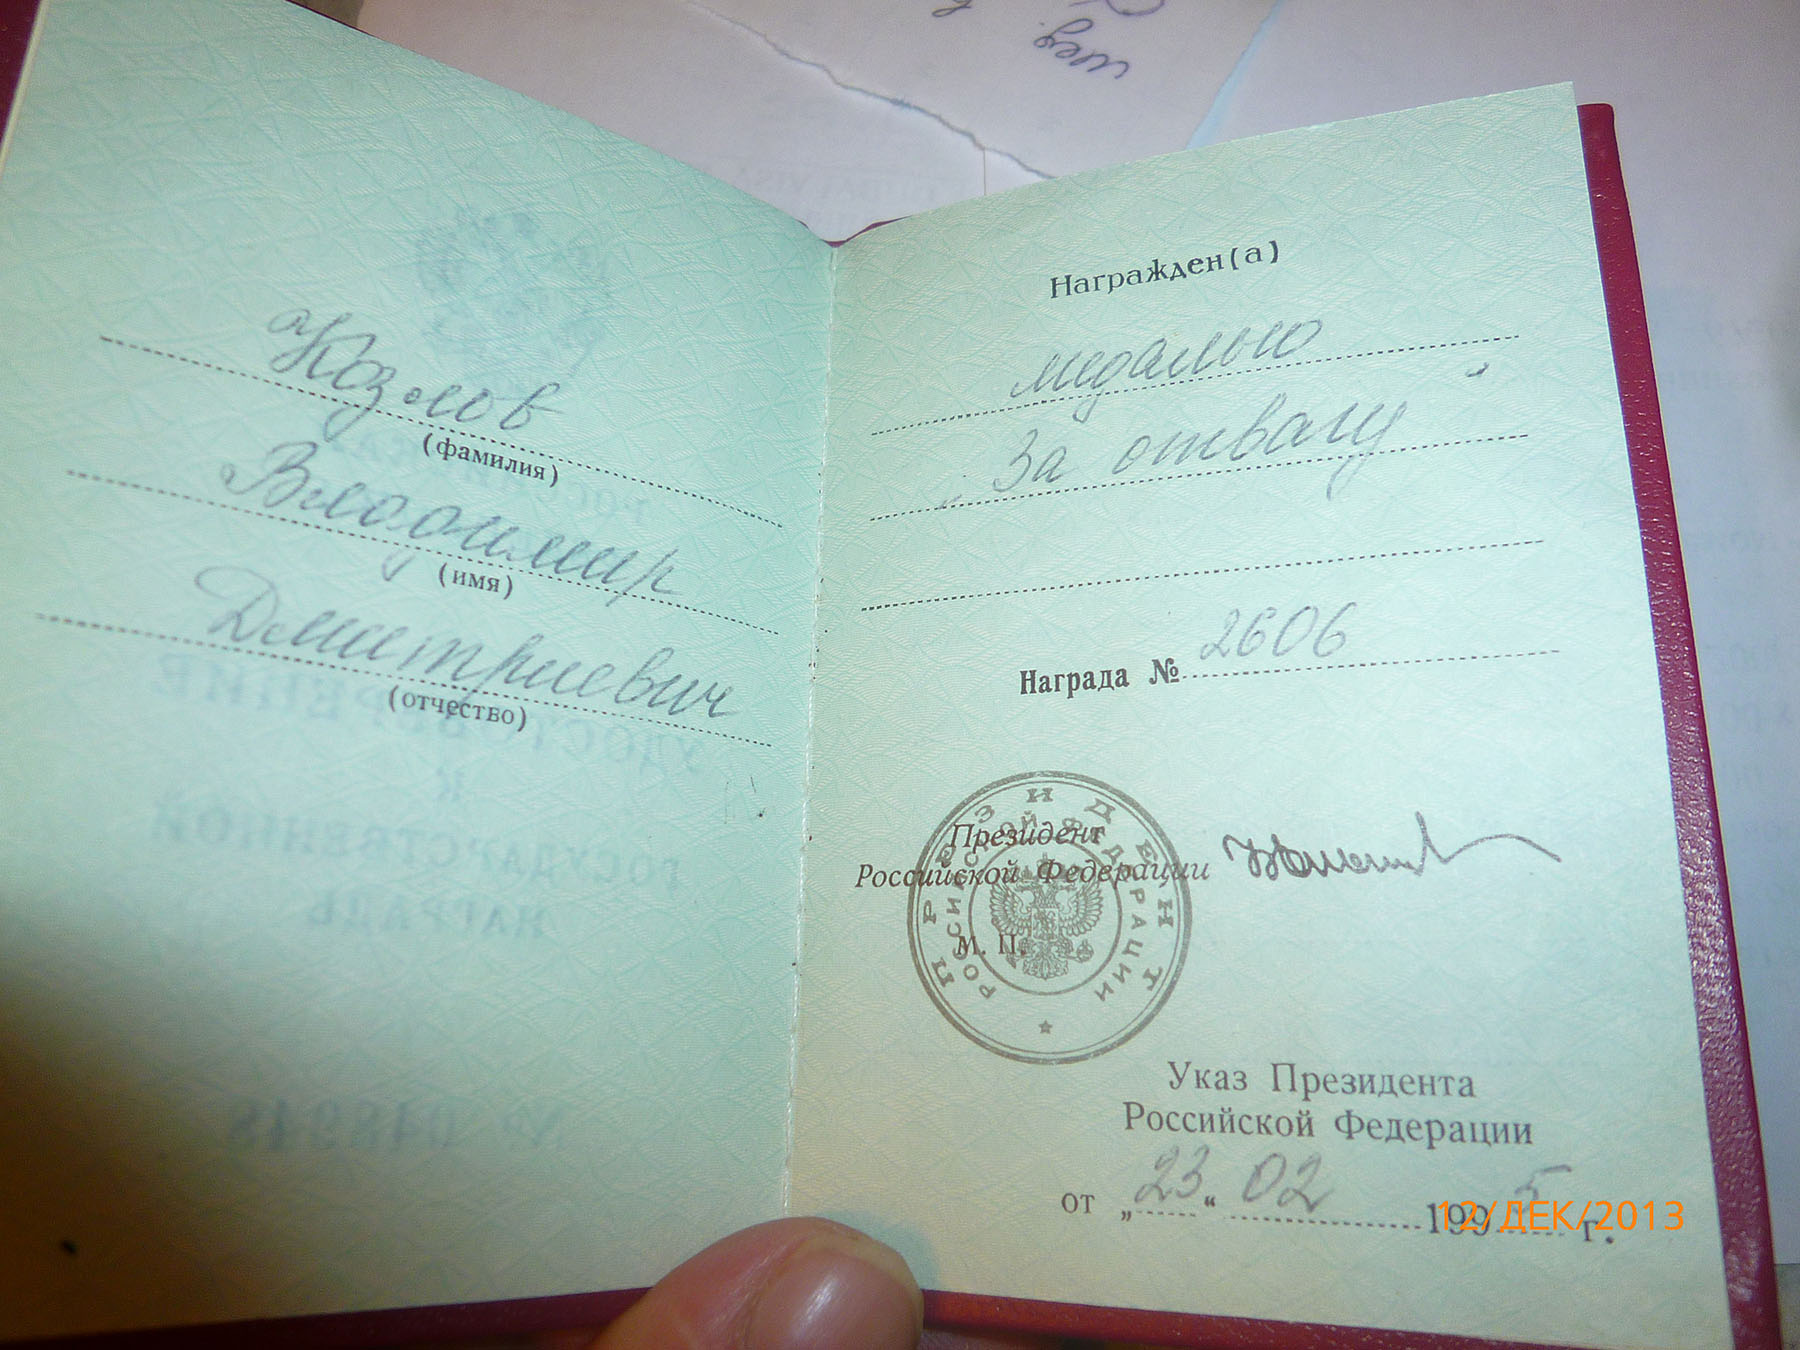 Козлов
(фамилия)
Владимир
(имя)
Дмитриевич
(отчество)
Награжден(а)
медалью
„За отвагу“
Награда № 2606
Президент
Российской Федерации
М. П.
ПРЕЗИДЕНТ
РОССИЙСКОЙ ФЕДЕРАЦИИ
Указ Президента
Российской Федерации
от „23“ 02 1995 г.
12/ДЕК/2013
УДОСТОВЕРЕНИЕ
К
ГОСУДАРСТВЕННОЙ
НАГРАДЕ